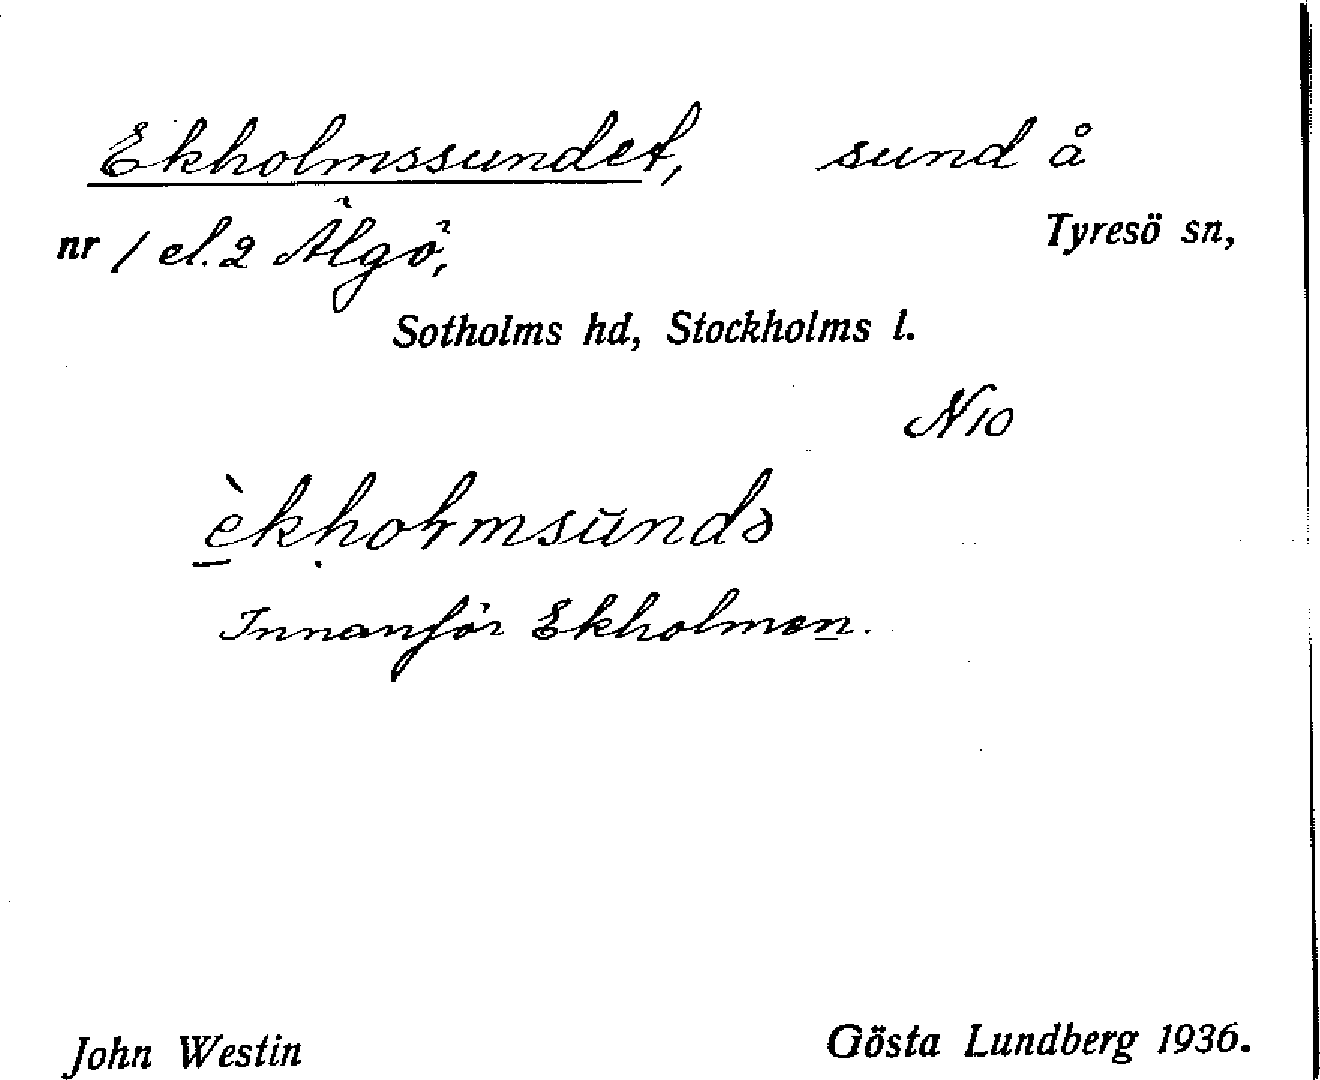 Ekholmssundet, sund å
nr 1 el. 2 Älgö, Tyresö sn,
Sotholms hd, Stockholms l.
N10
èkhołmsūndə
Innanför Ekholmen.
John Westin Gösta Lundberg 1936.